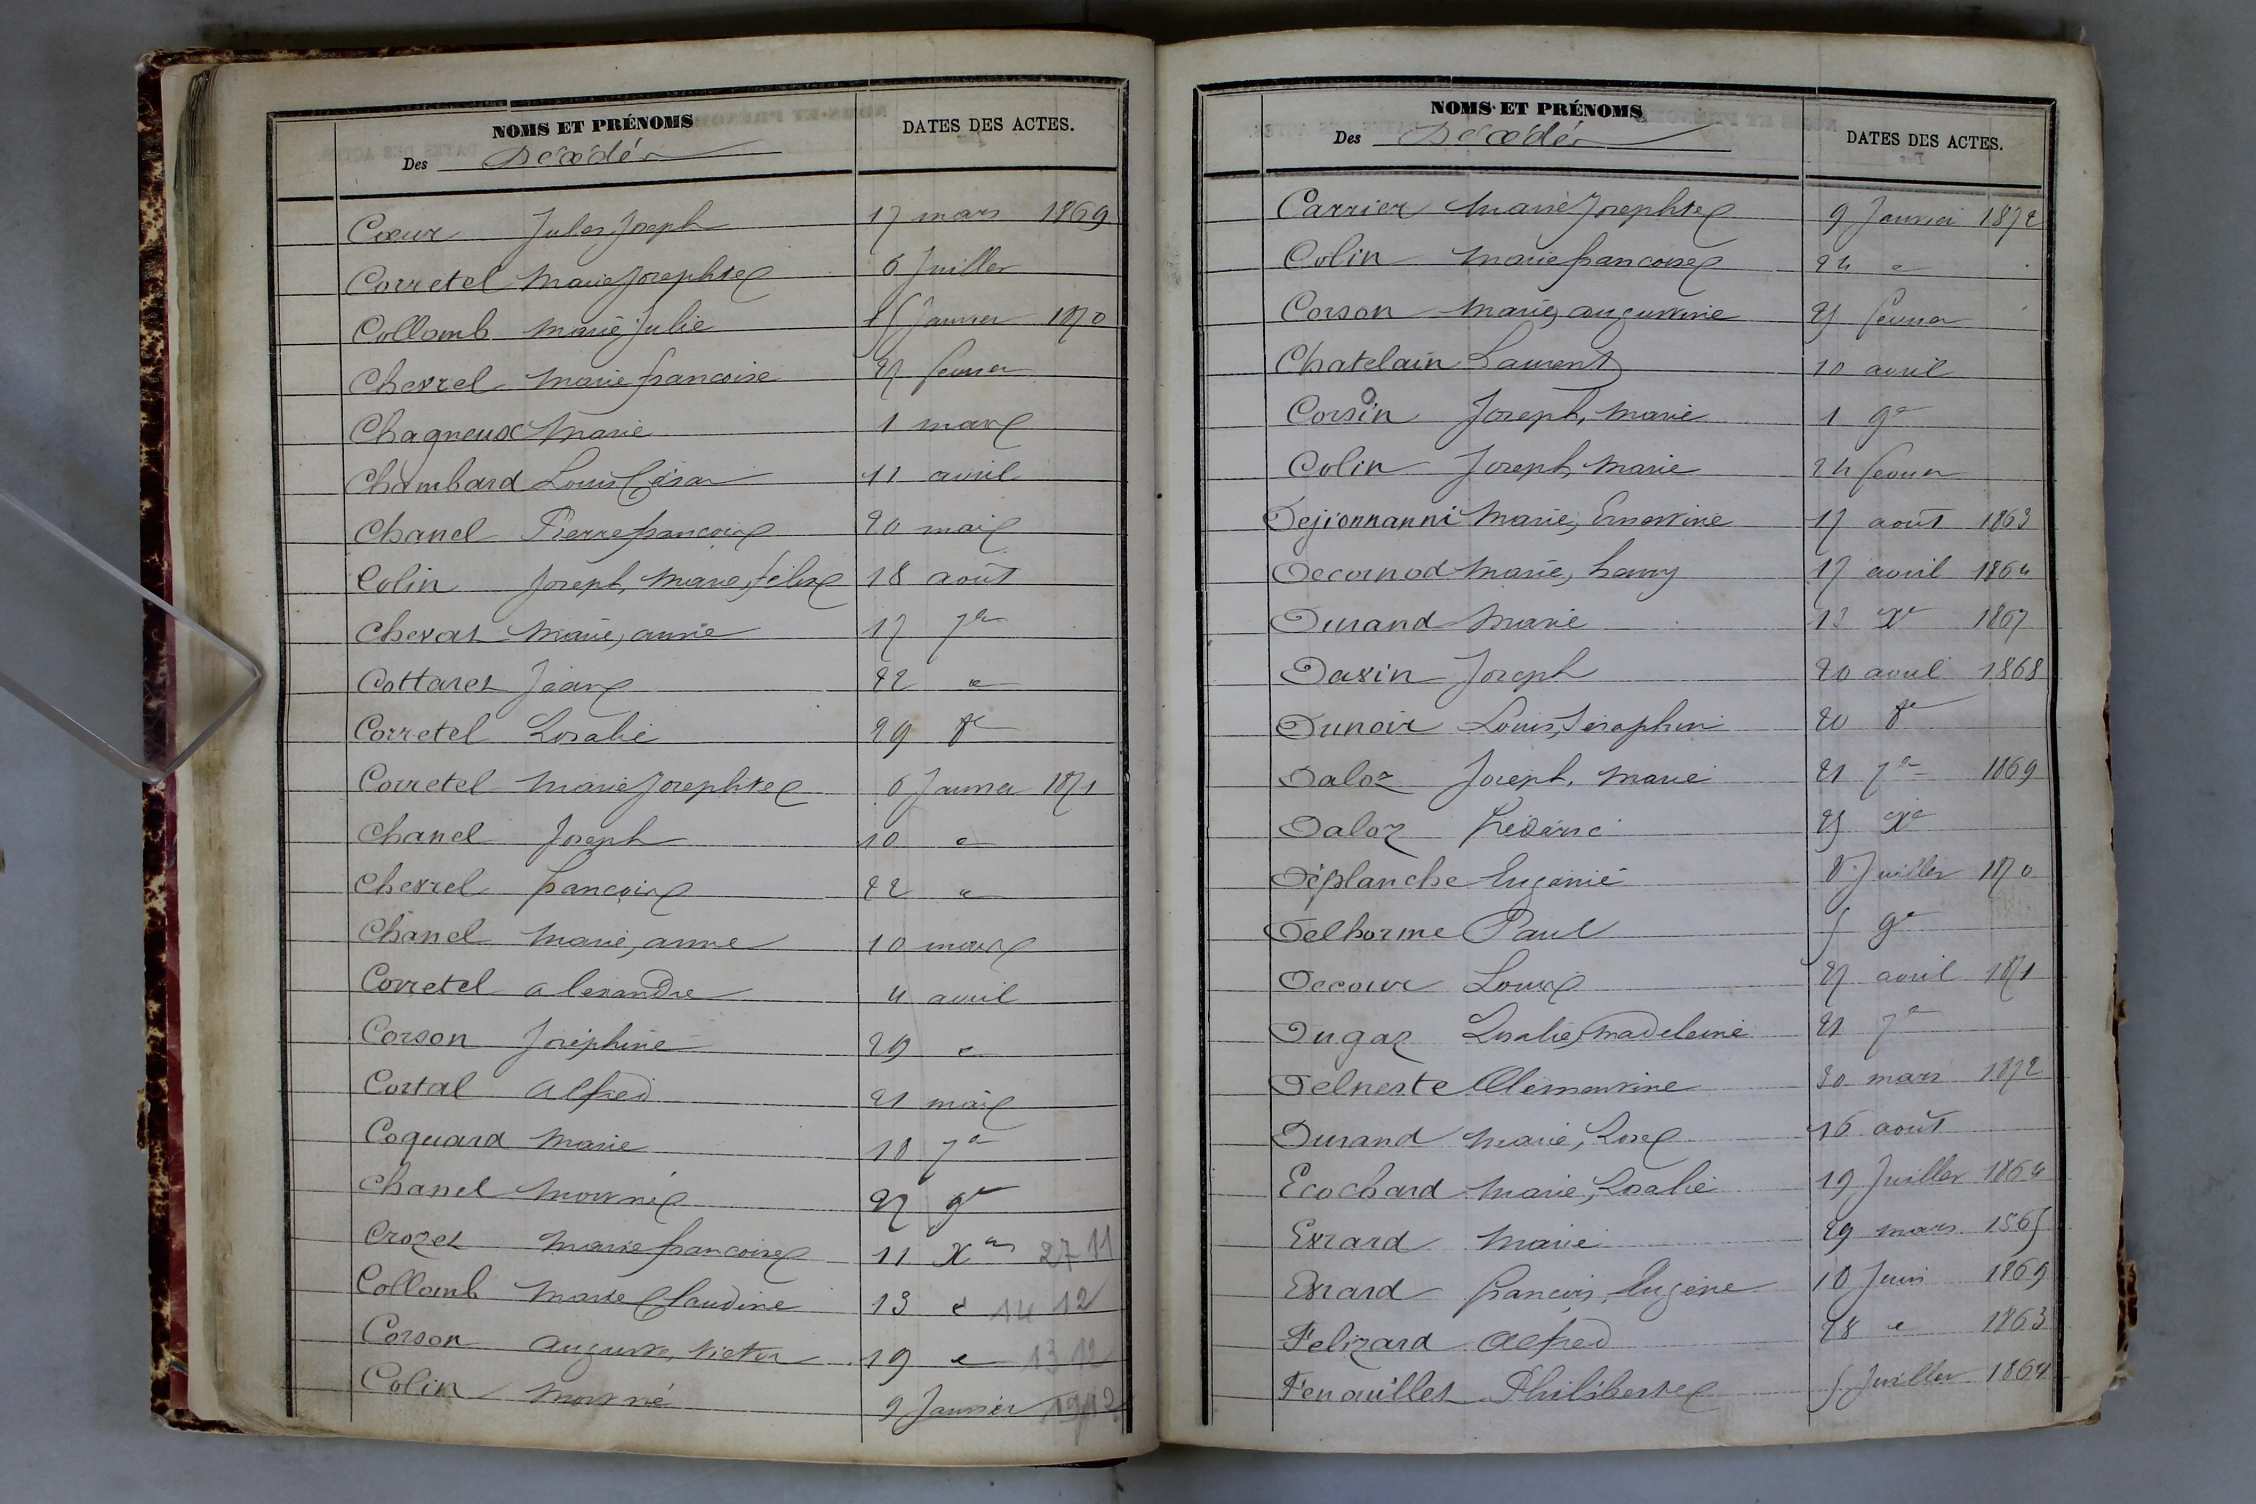 NOMS ET PRÉNOMS DATES DES ACTES.
Des Décédés
Cœur Jules Joseph 17 mars 1869
Corretel Marie Josephte 6 Juillet
Collomb Marie Julie 15 Janvier 1870
Chevrel Marie françoise 27 fevrier
Chagneux Marie 1 mars
Chambard Louis César 11 avril
Chanel Pierre françois 20 mai
Colin Joseph, Marie, félix 18 août
Chevat Marie, annie 17 7e
Cottaret Jean 22 "
Corretel Rosalie 29 8e
Corretel Marie Josephte 6 Janvier 1871
Chanel Joseph 10 "
Chevrel françois 22 "
Chanel Marie, anne 10 mars
Corretel alexandre 4 avril
Corson Joséphine 29 "
Cortal alfred 21 mai
Coquard Marie 10 7e
Chanel Mort né 27 9e
Crozet Marie françoise 11 Xe 27 11
Collomb Marie Claudine 13 " 14 12
Corson auguste, victor 19 " 13 12
Colin Mort né 9 Janvier
NOMS ET PRÉNOMS DATES DES ACTES.
Des Décédés
Carrier Marie Josephte 9 Janvier 1872
Colin Marie françoise 24 "
Corson Marie, augustine 25 fevrier
Chatelain Laurent 10 avril
Corsin Joseph, Marie 1 9e
Colin Joseph, Marie 24 fevrier
Dejionnanni Marie, Ernestine 17 août 1863
Decornod Marie, 17 avril 1864
Durand Marie 13 Xe 1867
Davin Joseph 20 avril 1868
Dunoir Louis, Séraphin 20 8e
Daloz Joseph, Marie 21 7e 1869
Daloz frédéric 25 Xe
Déplanche Eugénie 8 Juillet 1870
Delhorme Paul 5 9e
Decour Louis 27 avril 1871
Dugaz Rosalie, Madeleine 21 7e
Delneste Clémentine 20 mars 1872
Durand Marie, Rose 16 août
Ecochard Marie, Rosalie 19 Juillet 1864
Evrard Marie 29 mars 1865
Evrard françois, Eugène 10 Juin 1869
Felizard Alfred 28 " 1863
Fenouillet Philiberte 5 Juillet 1864